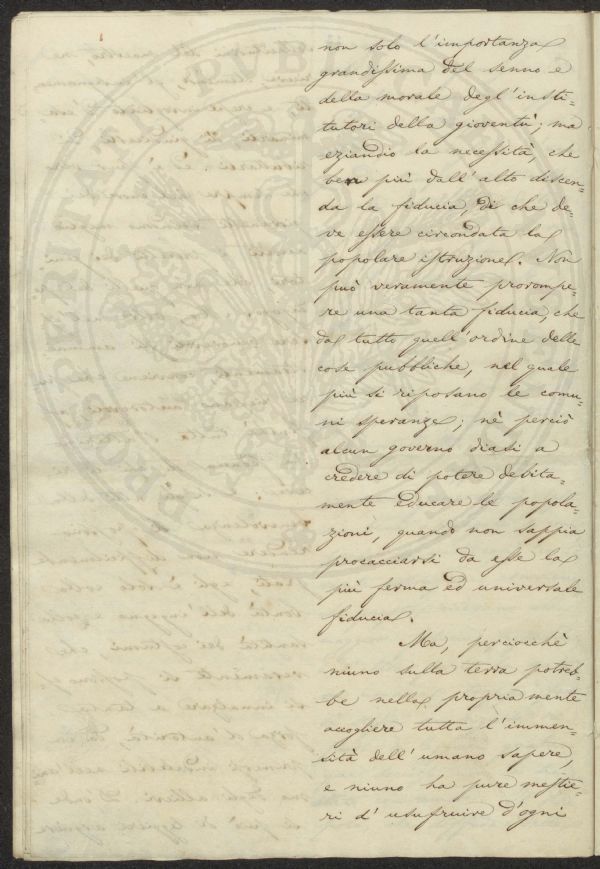 non solo l'importanza
grandissima del senno e
della morale degl'insti-
tutori della gioventù; ma
eziandio la necessità, che
ben più dall'alto discen-
da la fiducia, di che de-
ve essere circondata la
popolare istruzione. Non
può veramente prorompe-
re una tanta fiducia, che
da tutto quell'ordine delle
cose pubbliche, nel quale
più si riposano le comu-
ni speranze; nè perciò
alcun governo diasi a
credere di potere debita-
mente educare le popola-
zioni, quando non sappia
procacciarsi da esse la
più ferma ed universale
fiducia.
Ma, perciocchè
niuno sulla terra potreb-
be nella propria mente
accogliere tutta l'immen-
sità dell'umano sapere,
e niuno ha pure mestie-
ri d'usufruire d'ogni